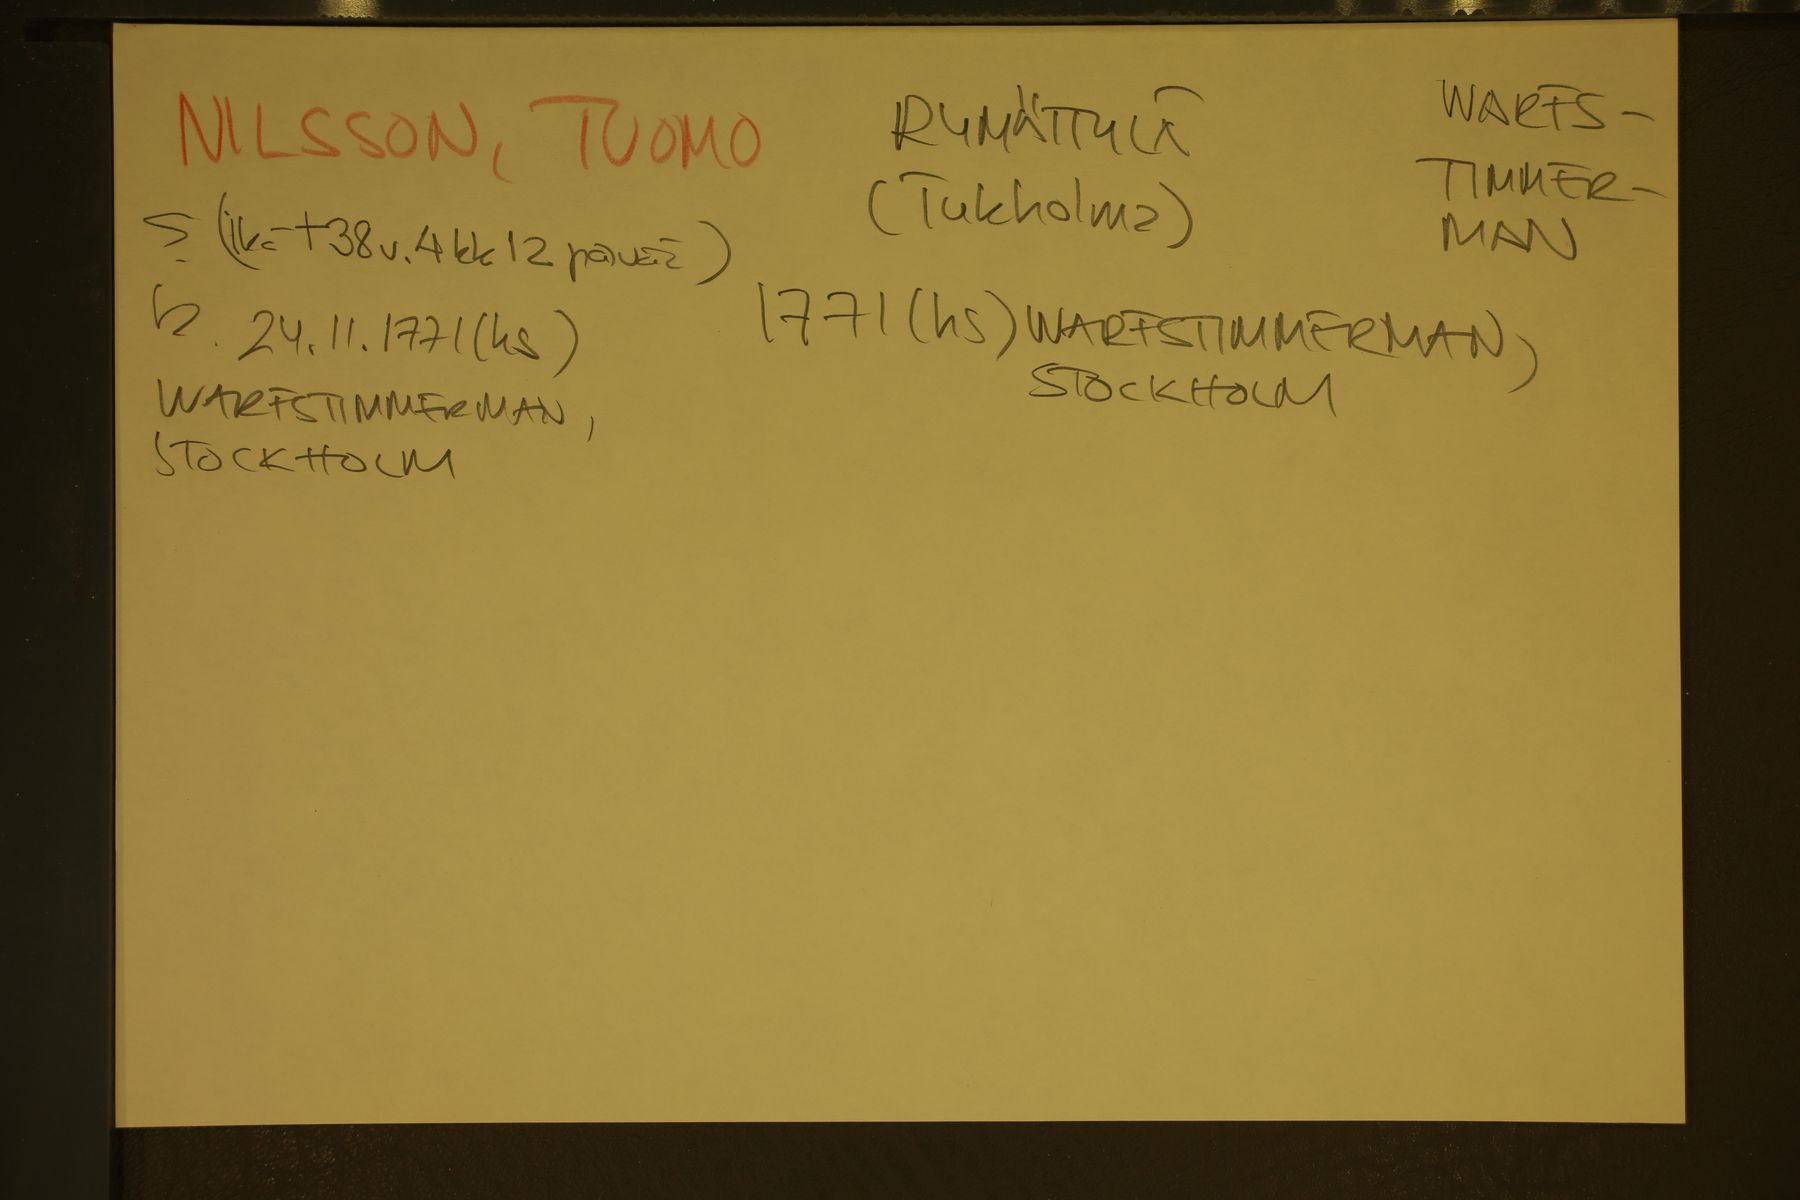 NILSSON, TUOMO
S. (ikä +38 v. 4 kk 12 päivää)
k. 24.11.1771 (hs)
WARFSTIMMERMAN,
STOCKHOLM
RYMÄTTYLÄ
(Tukholma)
1771 (hs) WARFSTIMMERMAN,
STOCKHOLM
WARFS-
TIMMER-
MAN